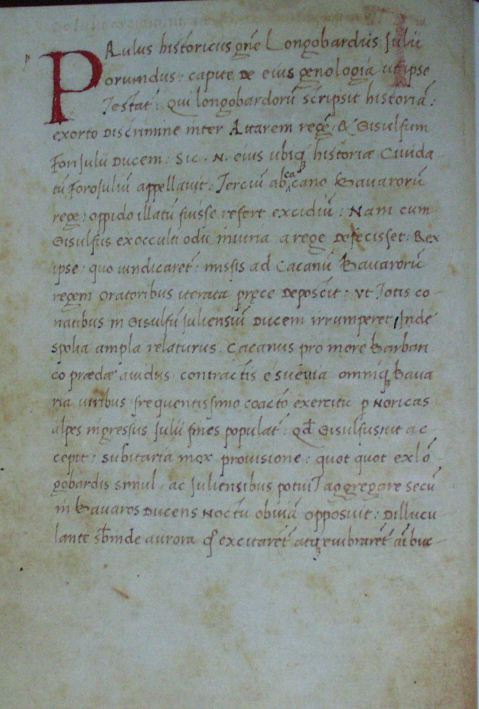 PAulus historicus gñe Longobardus Julii
Forumdus: capite de eius genologia ut ipse
Testat̃: Qui longobardorũ scripsit historiã:
exorto Discrimine inter Attarem regẽ & Gisulfum
Fori Julii Ducem: Sic. N. eius ubiq; historiæ Ciuida
tũ Forojuliũ appellauit: Terciũ ab cacano Bauarorũ
rege: oppido illatũ fuisse refert excidiũ: Nam cum
Gisulfus ex occulti odii iniuria a rege Defecisset: Rex
ipse: quo uindicaret: missis ad Cacanũ Bauarorũ
regem oratoribus iterata prece deposcit: ut Totis co
natibus in Gisulfũ Juliensiũ Ducem irrumperet, Inde
spolia ampla relaturus. Cacanus pro more Barbari
co prædæ auidus contractis e sueuia omniq; Baua
ria uiribus frequentissimo coacto exercitu p Noricas
alpes ingressus Julii fines populat̃: Qđ Gisulfus, ut ac
cepit: subitaria mox prouisione: quot quot ex lõ
gobardis simul ac Juliensibus potuiT aggregare secũ
in Bauaros Ducens Noctu obuiã opposuit: Dillucu
lante subinde aurora excitaret̃ atq; euibraret̃